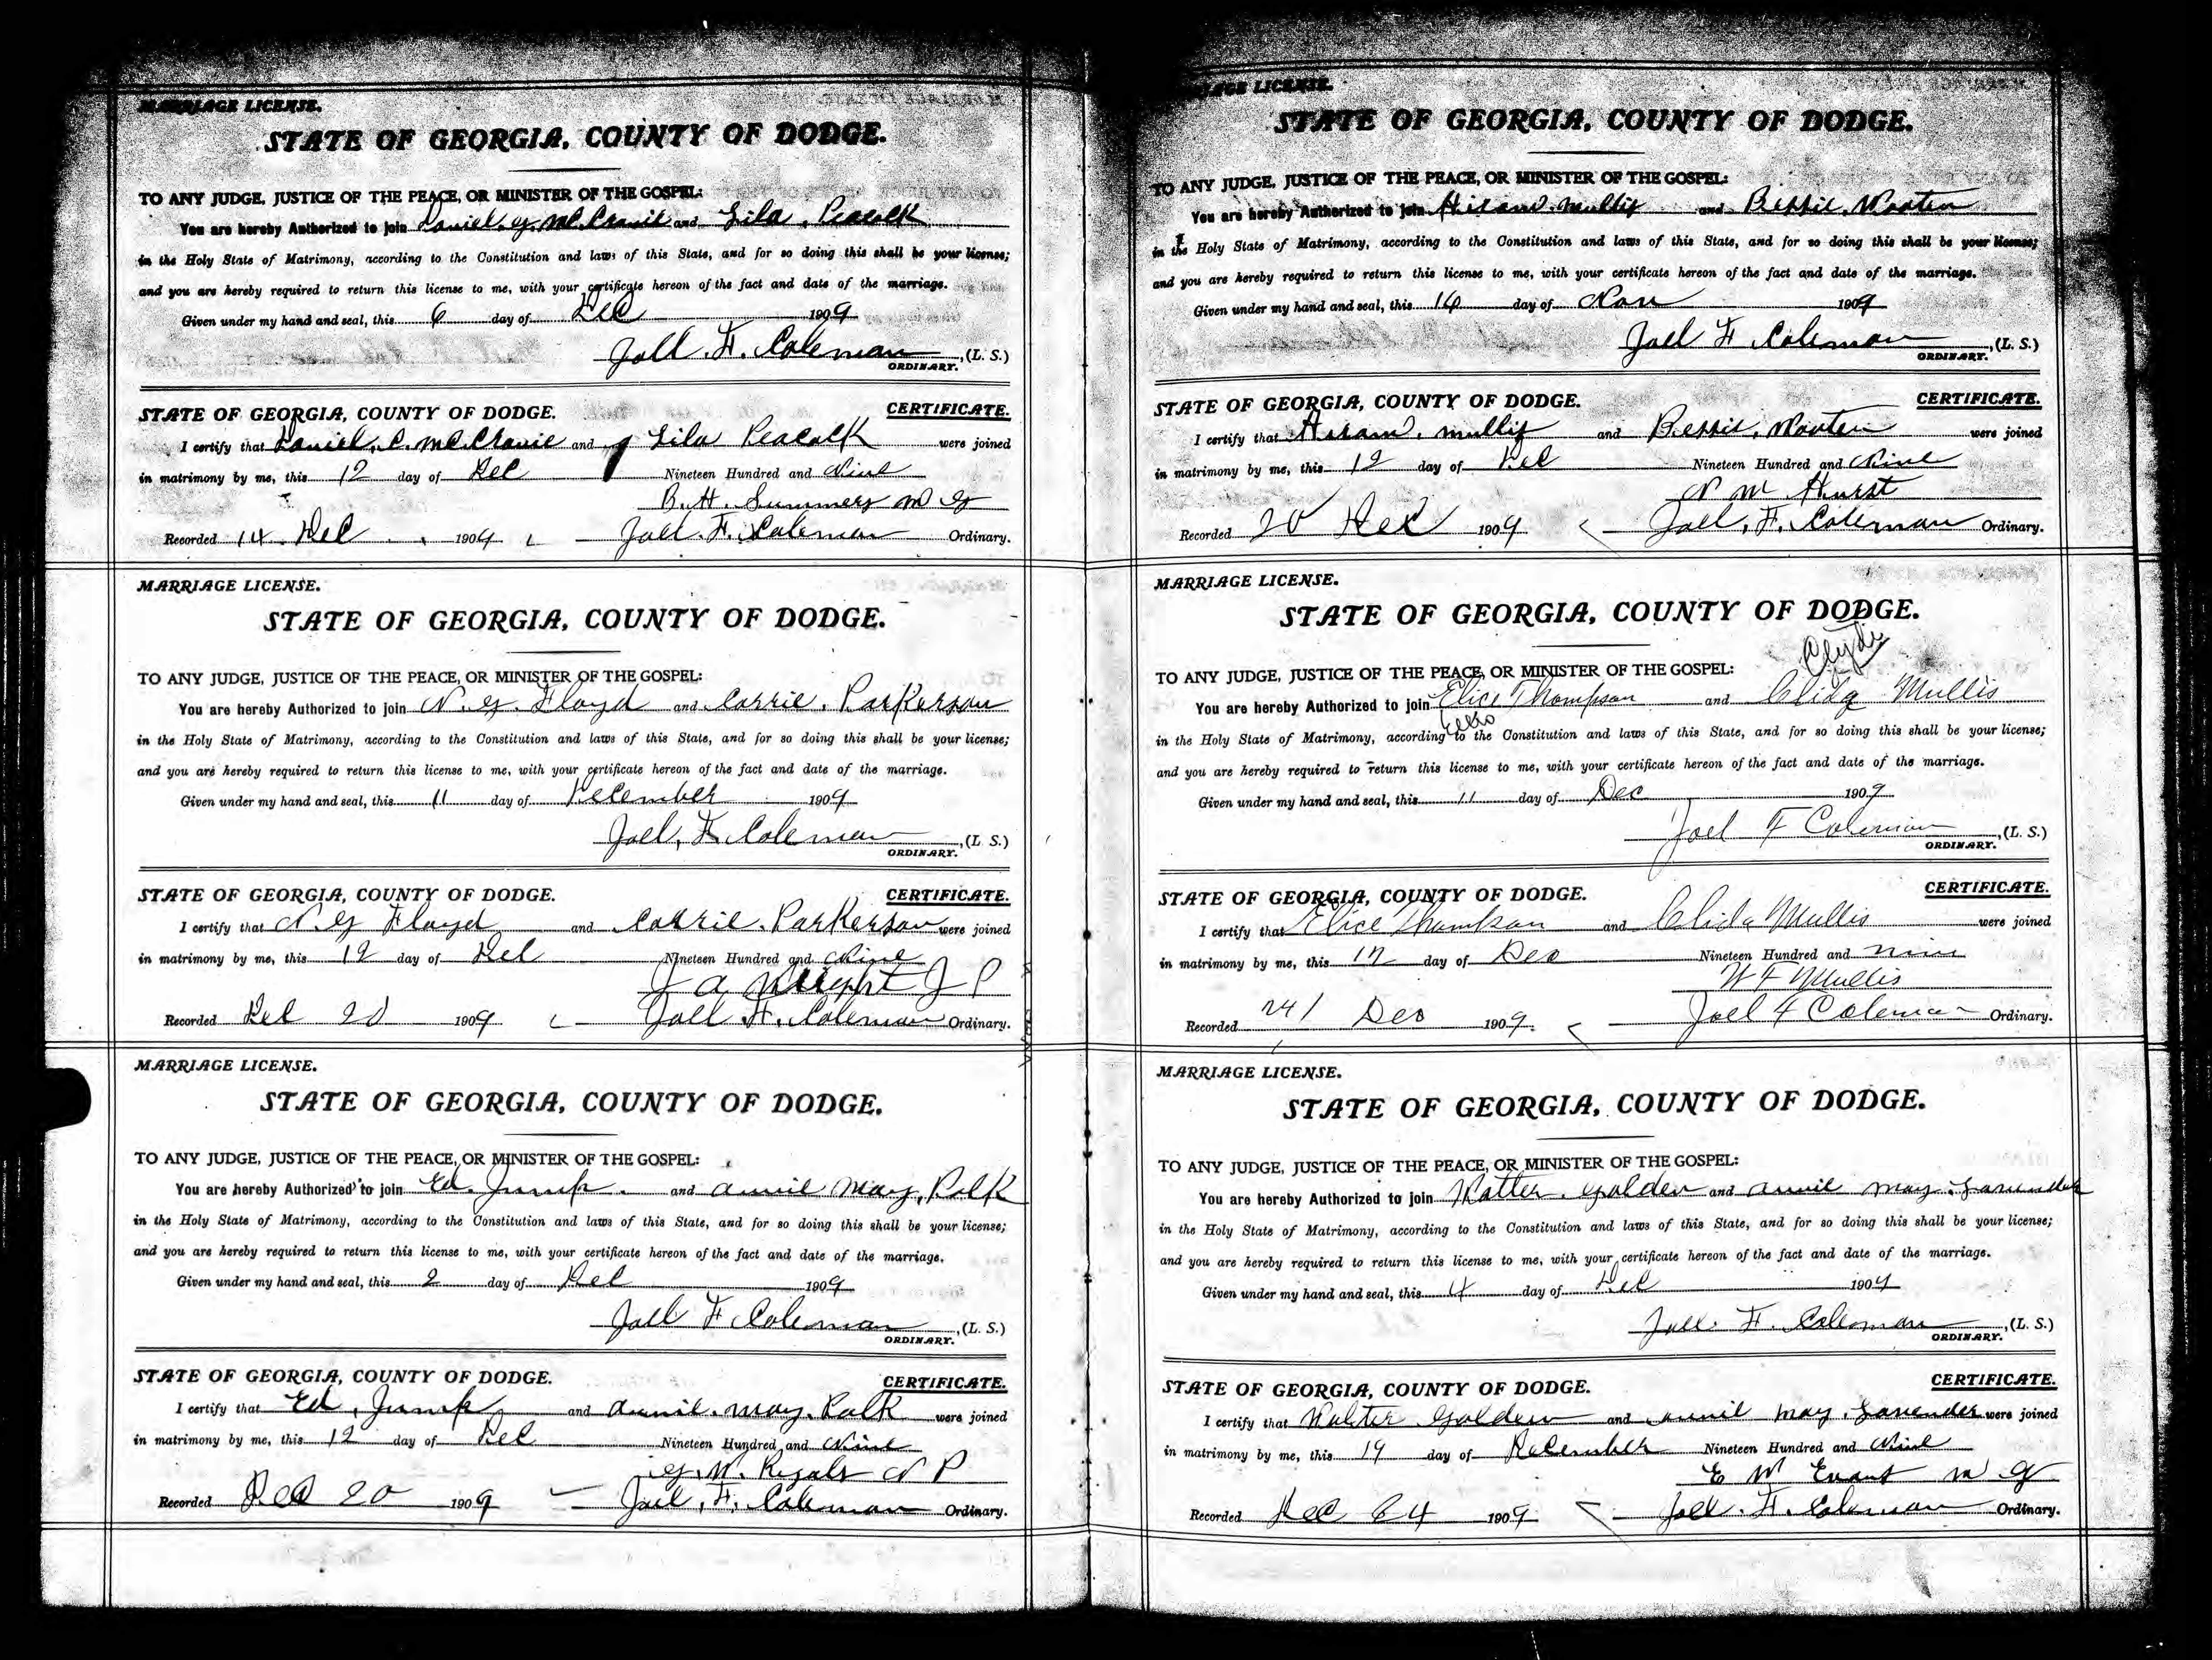 MARRIAGE LICENSE.
STATE OF GEORGIA, COUNTY OF DODGE.
TO ANY JUDGE, JUSTICE OF THE PEACE, OR MINISTER OF THE GOSPEL:
You are hereby Authorized to join Daniel and Lila Peacock
in the Holy State of Matrimony, according to the Constitution and laws of this State, and for so doing this shall be your license;
and you are hereby required to return this license to me, with your certificate hereon of the fact and date of the marriage.
Given under my hand and seal, this 6 day of Dec 1909
Joel. F. Coleman, (L. S.)
ORDINARY.
STATE OF GEORGIA, COUNTY OF DODGE. CERTIFICATE.
I certify that Daniel. C. McCranie and Lila Peacock were joined
in matrimony by me, this 12 day of Dec Nineteen Hundred and Nine
B. H. Summers M G
Recorded 14 Dec 1909 Joel. F. Coleman Ordinary.
MARRIAGE LICENSE.
STATE OF GEORGIA, COUNTY OF DODGE.
TO ANY JUDGE, JUSTICE OF THE PEACE, OR MINISTER OF THE GOSPEL:
You are hereby Authorized to join N. G. Floyd and Carrie. Parkerson
in the Holy State of Matrimony, according to the Constitution and laws of this State, and for so doing this shall be your license;
and you are hereby required to return this license to me, with your certificate hereon of the fact and date of the marriage.
Given under my hand and seal, this 11 day of December 1909
Joel. F. Coleman, (L. S.)
ORDINARY.
STATE OF GEORGIA, COUNTY OF DODGE. CERTIFICATE.
I certify that N. G Floyd and Carrie. Parkerson were joined
in matrimony by me, this 12 day of Dec Nineteen Hundred and Nine
J a J P
Recorded Dec 20 1909 Joel. F. Coleman Ordinary.
MARRIAGE LICENSE.
STATE OF GEORGIA, COUNTY OF DODGE.
TO ANY JUDGE, JUSTICE OF THE PEACE, OR MINISTER OF THE GOSPEL:
You are hereby Authorized to join Ed. Jump and Annie May, Polk
in the Holy State of Matrimony, according to the Constitution and laws of this State, and for so doing this shall be your license;
and you are hereby required to return this license to me, with your certificate hereon of the fact and date of the marriage.
Given under my hand and seal, this 2 day of Dec 1909
Joel F Coleman, (L. S.)
ORDINARY.
STATE OF GEORGIA, COUNTY OF DODGE. CERTIFICATE.
I certify that Ed. Jump and Annie. May. Polk were joined
in matrimony by me, this 12 day of Dec Nineteen Hundred and Nine
G. W. N P
Recorded Dec 20 1909 Joel. F. Coleman Ordinary.
MARRIAGE LICENSE.
STATE OF GEORGIA, COUNTY OF DODGE.
TO ANY JUDGE, JUSTICE OF THE PEACE, OR MINISTER OF THE GOSPEL:
You are hereby Authorized to join Hiram. Mullis and Bessie. Wooten
in the Holy State of Matrimony, according to the Constitution and laws of this State, and for so doing this shall be your license;
and you are hereby required to return this license to me, with your certificate hereon of the fact and date of the marriage.
Given under my hand and seal, this day of Nov 1909
Joel F Coleman, (L. S.)
ORDINARY.
STATE OF GEORGIA, COUNTY OF DODGE. CERTIFICATE.
I certify that Hiram. Mullis and Bessie. Wooten were joined
in matrimony by me, this 12 day of Dec Nineteen Hundred and Nine
N M Hurst
Recorded 20 Dec 1909 Joel. F. Coleman Ordinary.
MARRIAGE LICENSE.
STATE OF GEORGIA, COUNTY OF DODGE.
Clyde
TO ANY JUDGE, JUSTICE OF THE PEACE, OR MINISTER OF THE GOSPEL:
You are hereby Authorized to join Elice Thompson and Clida Mullis
in the Holy State of Matrimony, according to the Constitution and laws of this State, and for so doing this shall be your license;
and you are hereby required to return this license to me, with your certificate hereon of the fact and date of the marriage.
Given under my hand and seal, this 11 day of Dec 1909
Joel F Coleman, (L. S.)
ORDINARY.
STATE OF GEORGIA, COUNTY OF DODGE. CERTIFICATE.
I certify that Elice Thompson and Clida Mullis were joined
in matrimony by me, this 12 day of Dec Nineteen Hundred and nine
W F Mullis
Recorded Dec 1909. Joel F Coleman Ordinary.
MARRIAGE LICENSE.
STATE OF GEORGIA, COUNTY OF DODGE.
TO ANY JUDGE, JUSTICE OF THE PEACE, OR MINISTER OF THE GOSPEL:
You are hereby Authorized to join Walter. Golden and Annie May. Lavender
in the Holy State of Matrimony, according to the Constitution and laws of this State, and for so doing this shall be your license;
and you are hereby required to return this license to me, with your certificate hereon of the fact and date of the marriage.
Given under my hand and seal, this 4 day of Dec 1909
Joel. F. Coleman, (L. S.)
ORDINARY.
STATE OF GEORGIA, COUNTY OF DODGE. CERTIFICATE.
I certify that Walter Golden and Annie May. Lavender were joined
in matrimony by me, this 19 day of December Nineteen Hundred and Nine
E W Evans M G
Recorded Dec 24 1909 Joel. F. Coleman Ordinary.